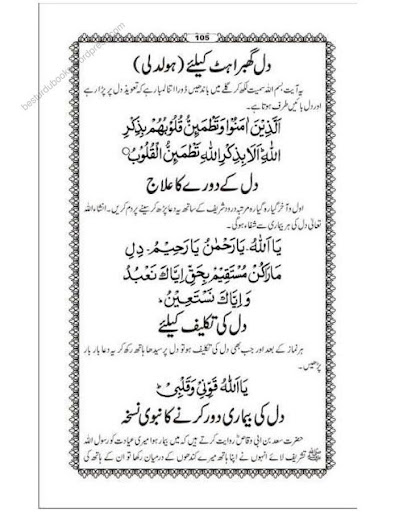 besturdubooks.wordpress.com
105
دل گھبراہٹ کیلئے (ہولدلی)
یہ آیت بسم اللہ سمیت لکھ کر گلے میں باندھیں ڈورا اتنا لمبا رہے کہ تعویذ دل پر پڑا رہے
اور دل بائیں طرف ہوتا ہے۔
اَلَّذِیْنَ اٰمَنُوْا وَتَطْمَئِنُّ قُلُوْبُهُمْ بِذِكْرِ
اللّٰهِ اَلَا بِذِكْرِ اللّٰهِ تَطْمَئِنُّ الْقُلُوْبُ
دل کے دورے کا علاج
اول و آخر گیارہ گیارہ مرتبہ درود شریف کے ساتھ یہ دعا پڑھ کر سینے پر دم کریں۔ انشاء اللہ
تعالیٰ دل کی ہر بیماری سے شفاء ہوگی۔
یَا اَللّٰهُ۔ یَا رَحْمٰنُ یَا رَحِیْمُ۔ دِلِ
مَارَاکُنْ مُسْتَقِیْمَ بِحَقِّ اِیَّاكَ نَعْبُدُ
وَ اِیَّاكَ نَسْتَعِیْنُ۔
دل کی تکلیف کیلئے
ہر نماز کے بعد اور جب بھی دل کی تکلیف ہو تو دل پر سیدھا ہاتھ رکھ کر یہ دعا بار بار
پڑھیں۔
یَا اَللّٰهُ قَوِّنِیْ وَ قَلْبِیْ
دل کی بیماری دور کرنے کا نبوی نسخہ
حضرت سعد بن ابی وقاص روایت کرتے ہیں کہ میں بیمار ہوا میری عیادت کو رسول اللہ
ﷺ تشریف لائے انہوں نے اپنا ہاتھ میرے کندھوں کے درمیان رکھا تو ان کے ہاتھ کی